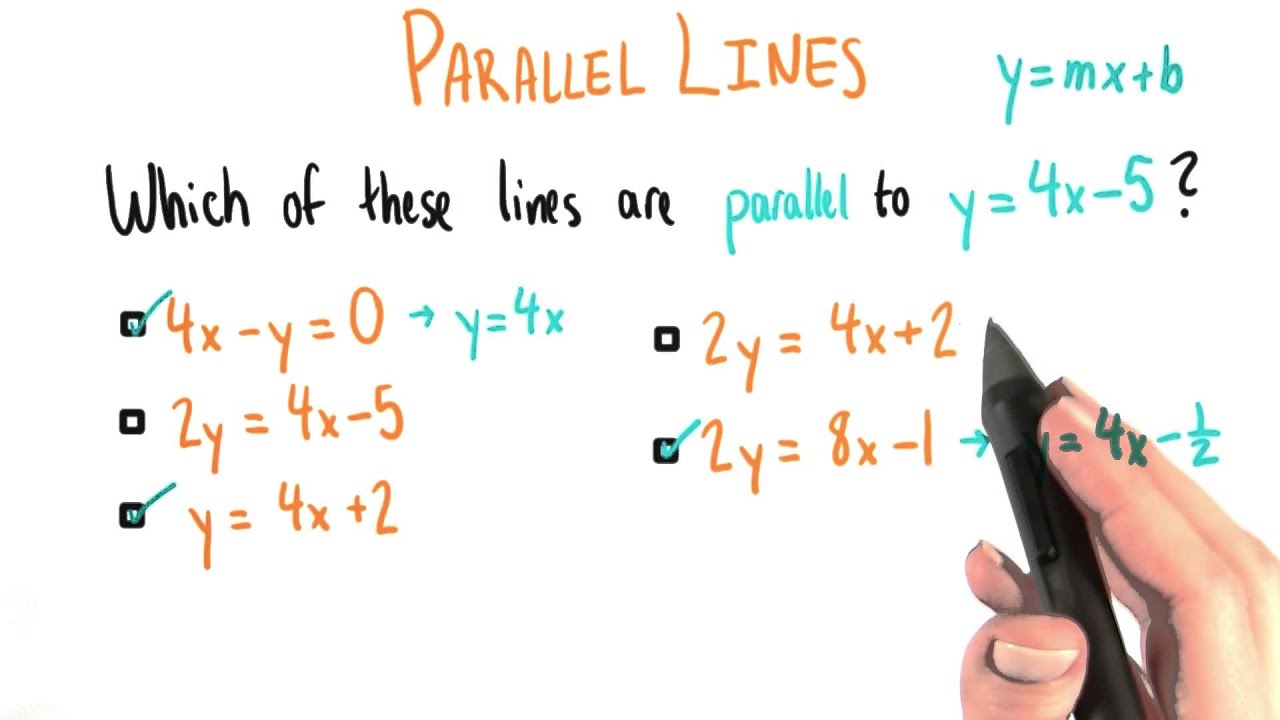 PARALLEL LINES
y=mx+b
Which of these lines are parallel to y=4x-5?
4x-y=0 → y=4x
2y=4x-5
y=4x+2
2y=4x+2
2y=8x-1 → y=4x-1/2